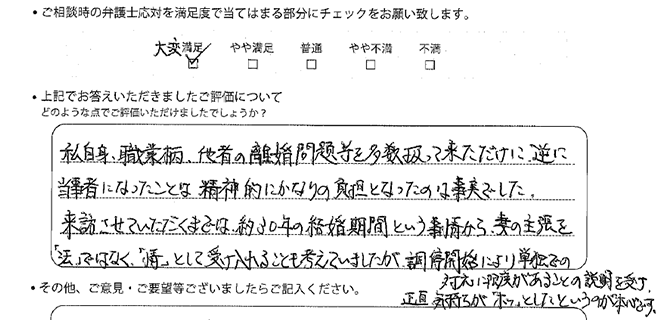 ・ご相談時の弁護士応対を満足度で当てはまる部分にチェックをお願い致します。
大変満足 やや満足 普通 やや不満 不満
・上記でお答えいただきましたご評価について
どのような点でご評価いただけましたでしょうか?
私自身、職業柄、他者の離婚問題等を多数扱って来ただけに、逆に
当事者になったことは精神的にかなりの負担となったのは事実でした。
来訪させていただくまでは、約30年の結婚期間という事情から、妻の主張を
「法」ではなく、「情」として受け入れることも考えていましたが、調停開始により単独での
対応に限度があることの説明を受け、
正直気持ちが「ホッ」としたというのが本心です。
・その他、ご意見・ご要望等ございましたらご記入ください。